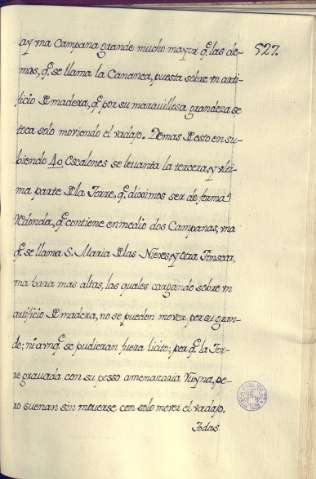 527.
ay vna Campana grande mucho mayor q̃ las de-
mas, q̃ se llama la Cananea, puesta sobre vn arti-
ficio de madera, q̃ por su marauillosa grandeza se
toca solo moviendo el vadajo. Demas de esto en su-
biendo 40 Escalones se levanta la tercera, y vlti-
ma parte de la Torre, q̃ diximos ser de forma
redonda, q̃ contiene en medio dos Campanas, vna
q̃ se llama S. Maria de las Nieves, y otra
vna vara mas altas, las quales cargando sobre vn
artificio de madera, no se pueden mover por su gran-
de; ni avnq̃ se pudieran fuera licito; porq̃ la Tor-
re gravada con su pesso amenazaria Ruyna, pe-
ro suenan sin moverse con solo mover el vadajo.
Todas